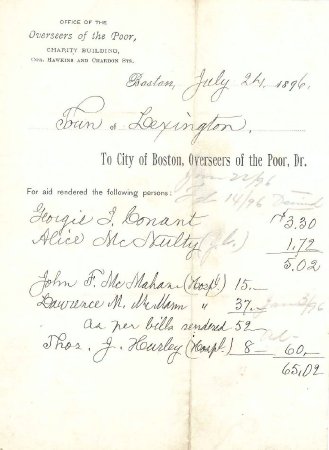 OFFICE OF THE
Overseers of the Poor,
CHARITY BUILDING,
COR. HAWKINS AND CHARDON STS.
Boston, July 24, 1896.
Town of Lexington,
To City of Boston, Overseers of the Poor, Dr.
Jan 22/96
For aid rendered the following persons: Feb 14/96
Georgie I. Conant 3.30
Alice McNulty 1.72
5.02
John F. McMahan (Hospl.) 15.—
Lawrence M. McMann " 37.—
as per bills rendered 52—
Thos. J. Hurley (Hospl.) 8— 60.—
65.02